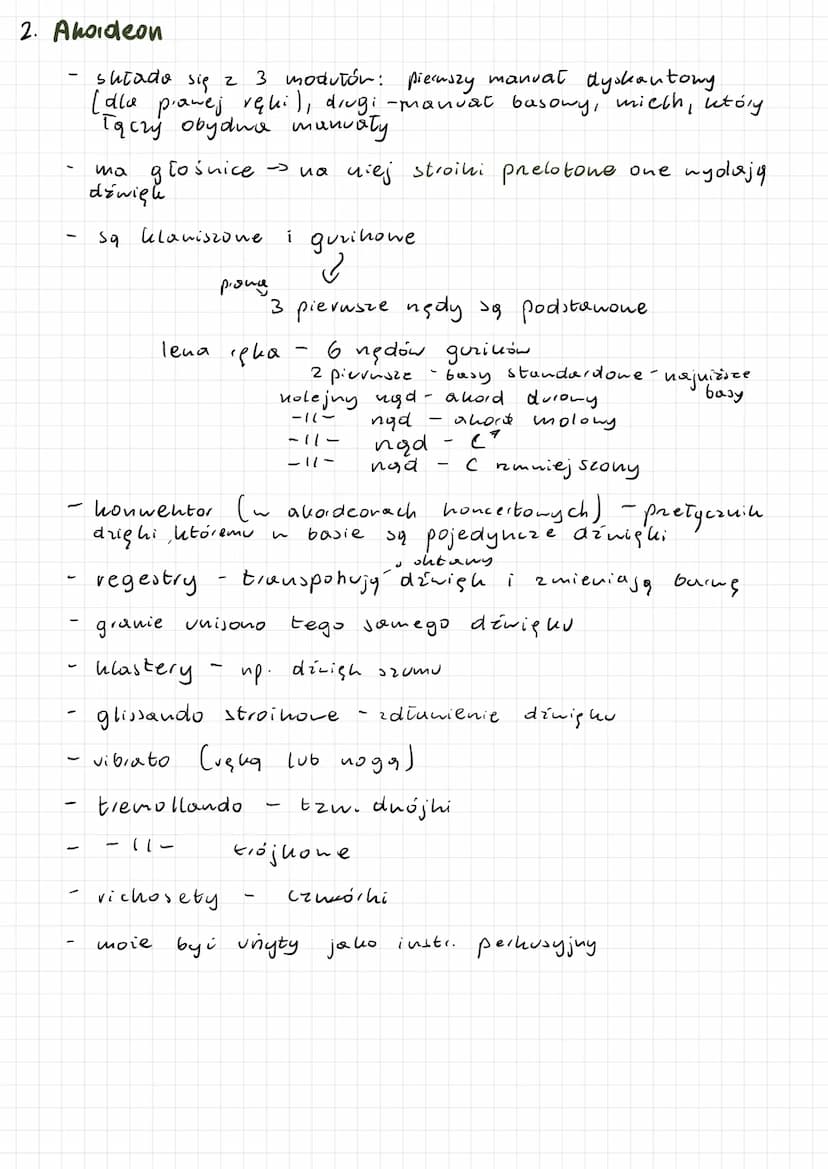 2. Akordeon
- składa się z 3 modułów: pierwszy manuał dyskantowy
(dla prawej ręki), drugi - manuał basowy, miech, który
łączy obydwa manuały
- ma głośnice → na niej stroiki przelotowe one wydają
dźwięk
- są klawiszowe i guzikowe
prawa
3 pierwsze rzędy są podstawowe
lewa ręka - 6 rzędów guzików
2 pierwsze - basy standardowe - najniższe
basy
kolejny rząd - akord durowy
-||- rząd - akord molowy
-||- rząd - C⁷
-||- rząd - C zmniejszony
- konwertor (w akordeonach koncertowych) - przełącznik
dzięki któremu w basie są pojedyncze dźwięki
, oktawy
- regestry - transponują dźwięk i zmieniają barwę
- granie unisono tego samego dźwięku
- klastery - np. dźwięk szumu
- glissando stroikowe - zdławienie dźwięku
- vibrato (ręką lub nogą)
- tremollando - tzw. dwójki
- -||- trójkowe
- richosety - czwórki
- może być użyty jako instr. perkusyjny